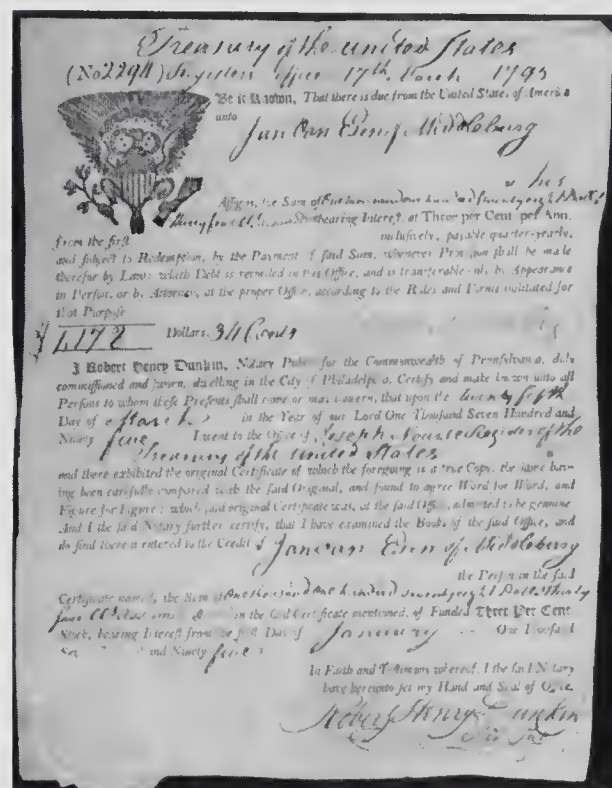 Treasury of the united States
(No 2294) Registers Office 17th March 1795
Be it Known, That there is due from the United States of America
unto
Jan Van Eien of Middleburg
or his
Assigns, the Sum of One thousand one hundred Seventy eight Doll.
thirty four Cts bearing Interest at Three per Cent. per Ann.
from the first inclusively, payable quarter-yearly,
and subject to Redemption, by the Payment of said Sum, whenever Provision shall be made
therefor by Law; which Debt is recorded in this Office, and is transferable only by Appearance
in Person, or by Attorney, at the proper Office, according to the Rules and Forms instituted for
that Purpose
Dollars. 34 Cents
I Robert Henry Dunkin, Notary Public for the Commonwealth of Pennsylvania, duly
commissioned and sworn, dwelling in the City of Philadelphia, Certify and make known unto all
Persons to whom these Presents shall come or may concern, that upon the twenty fifth
Day of March in the Year of our Lord One Thousand Seven Hundred and
Ninety five I went to the Office of Joseph Nourse Register of the
Treasury of the united States
and there exhibited the original Certificate of which the foregoing is a true Copy, the same hav-
ing been carefully compared with the said Original, and found to agree Word for Word, and
Figure for Figure; which said original Certificate was, at the said Office, admitted to be genuine
And I the said Notary further certify, that I have examined the Books of the said Office, and
do find therein entered to the Credit of Jan van Eien of Middleburg
the Person in the said
Certificate named, the Sum of One thousand one hundred seventy eight Dolls thirty
four Cts in the said Certificate mentioned, of Funded Three Per Cent
Stock, bearing Interest from the first Day of January One Thousand
Seven and Ninety five
In Faith and Testimony whereof, I the said Notary
have hereunto set my Hand and Seal of Office,
Robert Henry Dunkin